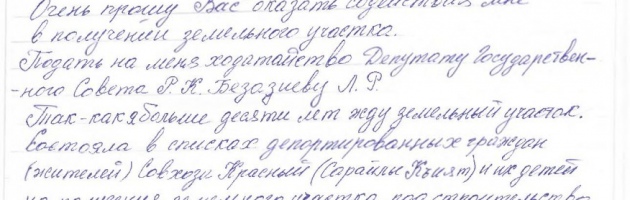 Очень прошу Вас оказать содействия мне
в получении земельного участка.
Подать на меня ходатайство Депутату Государствен-
-ного Совета Р.К. Безазиеву Л.Р.
Так-как я больше десяти лет жду земельный участок.
Состояла в списках депортированных граждан
(жителей) Совхоза Красный (Сарайлы Къият) и их детей
земельного участка под строительство